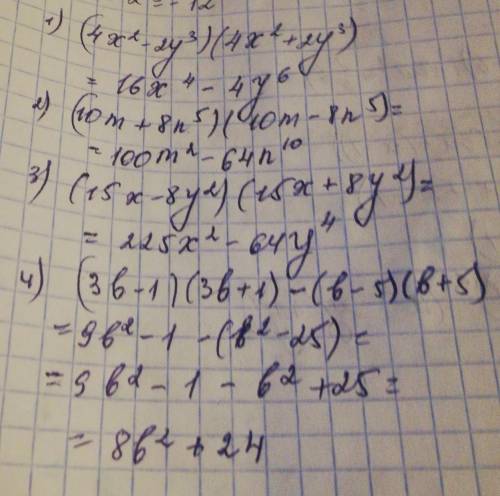 2 = -12
1) (4x²-2y³)(4x²+2y³)
= 16x⁴ - 4y⁶
2) (10m + 8n⁵)(10m - 8n⁵)=
= 100m² - 64n¹⁰
3) (15x - 8y²)(15x + 8y²)=
= 225x² - 64y⁴
4) (3b-1)(3b+1)-(b-5)(b+5)
= 9b² - 1 - (b² - 25) =
= 9b² - 1 - b² + 25 =
= 8b² + 24